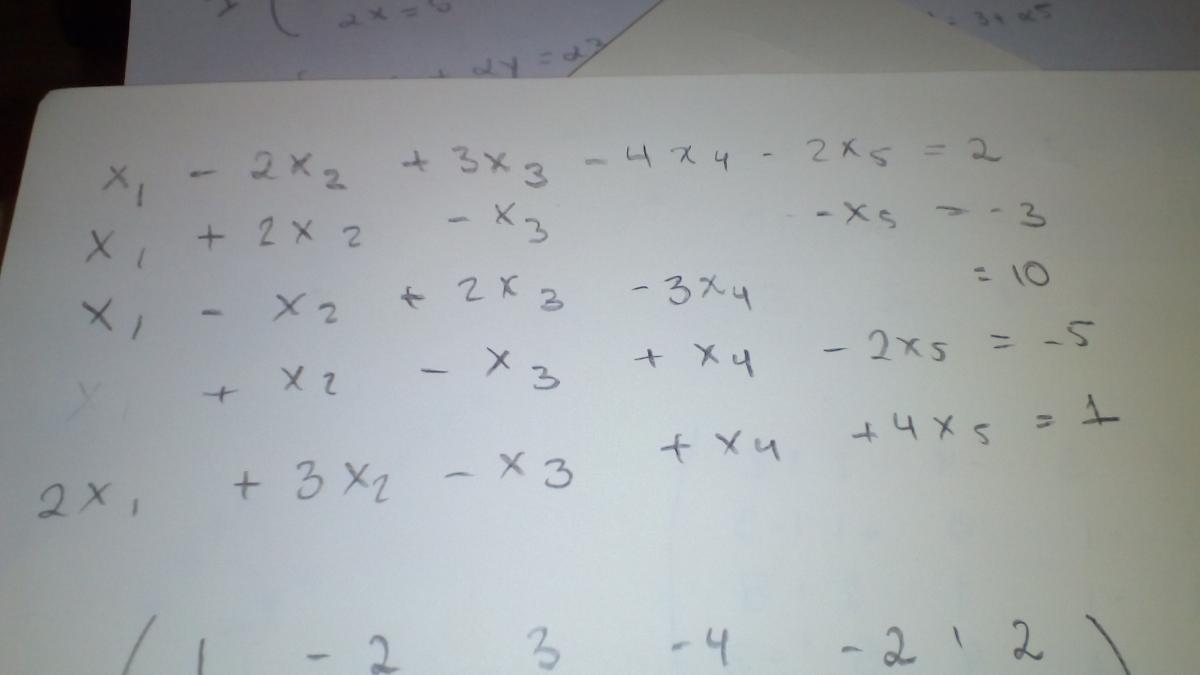 2x =
+ 2y = 23
x₁ - 2x₂ + 3x₃ - 4x₄ - 2x₅ = 2
x₁ + 2x₂ - x₃ - x₅ = -3
x₁ - x₂ + 2x₃ - 3x₄ = 10
+ x₂ - x₃ + x₄ - 2x₅ = -5
2x₁ + 3x₂ - x₃ + x₄ + 4x₅ = 1
( 1 -2 3 -4 -2 | 2 )